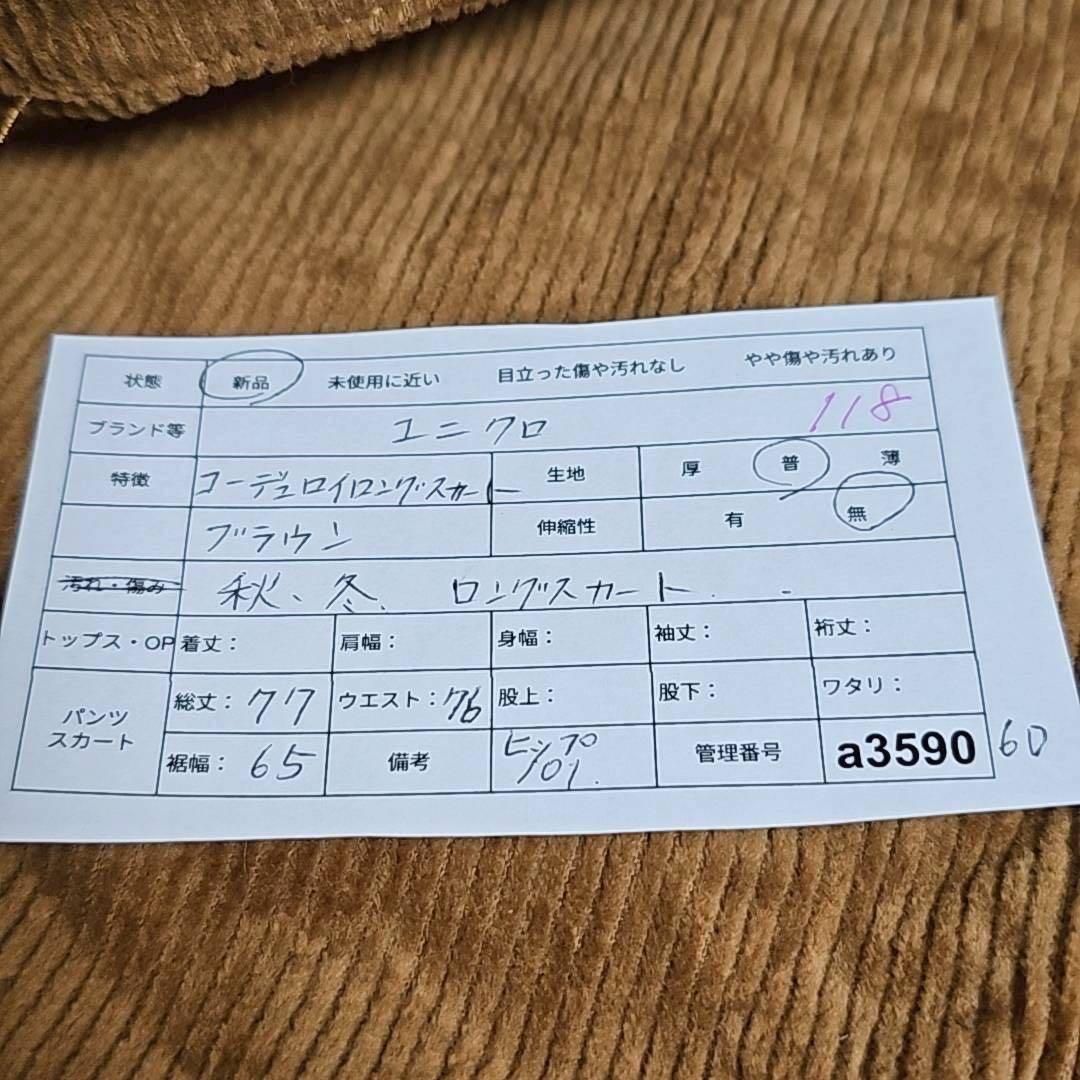 状態 新品 未使用に近い 目立った傷や汚れなし やや傷や汚れあり
ブランド等 ユニクロ 118
特徴 コーデュロイロングスカート 生地 厚 普 薄
ブラウン 伸縮性 有 無
汚れ・傷み 秋、冬、ロングスカート
トップス・OP 着丈： 肩幅： 身幅： 袖丈： 裄丈：
パンツ
スカート
総丈：77 ウエスト：76 股上： 股下： ワタリ：
裾幅：65 備考 ヒップ
101. 管理番号 a3590 60